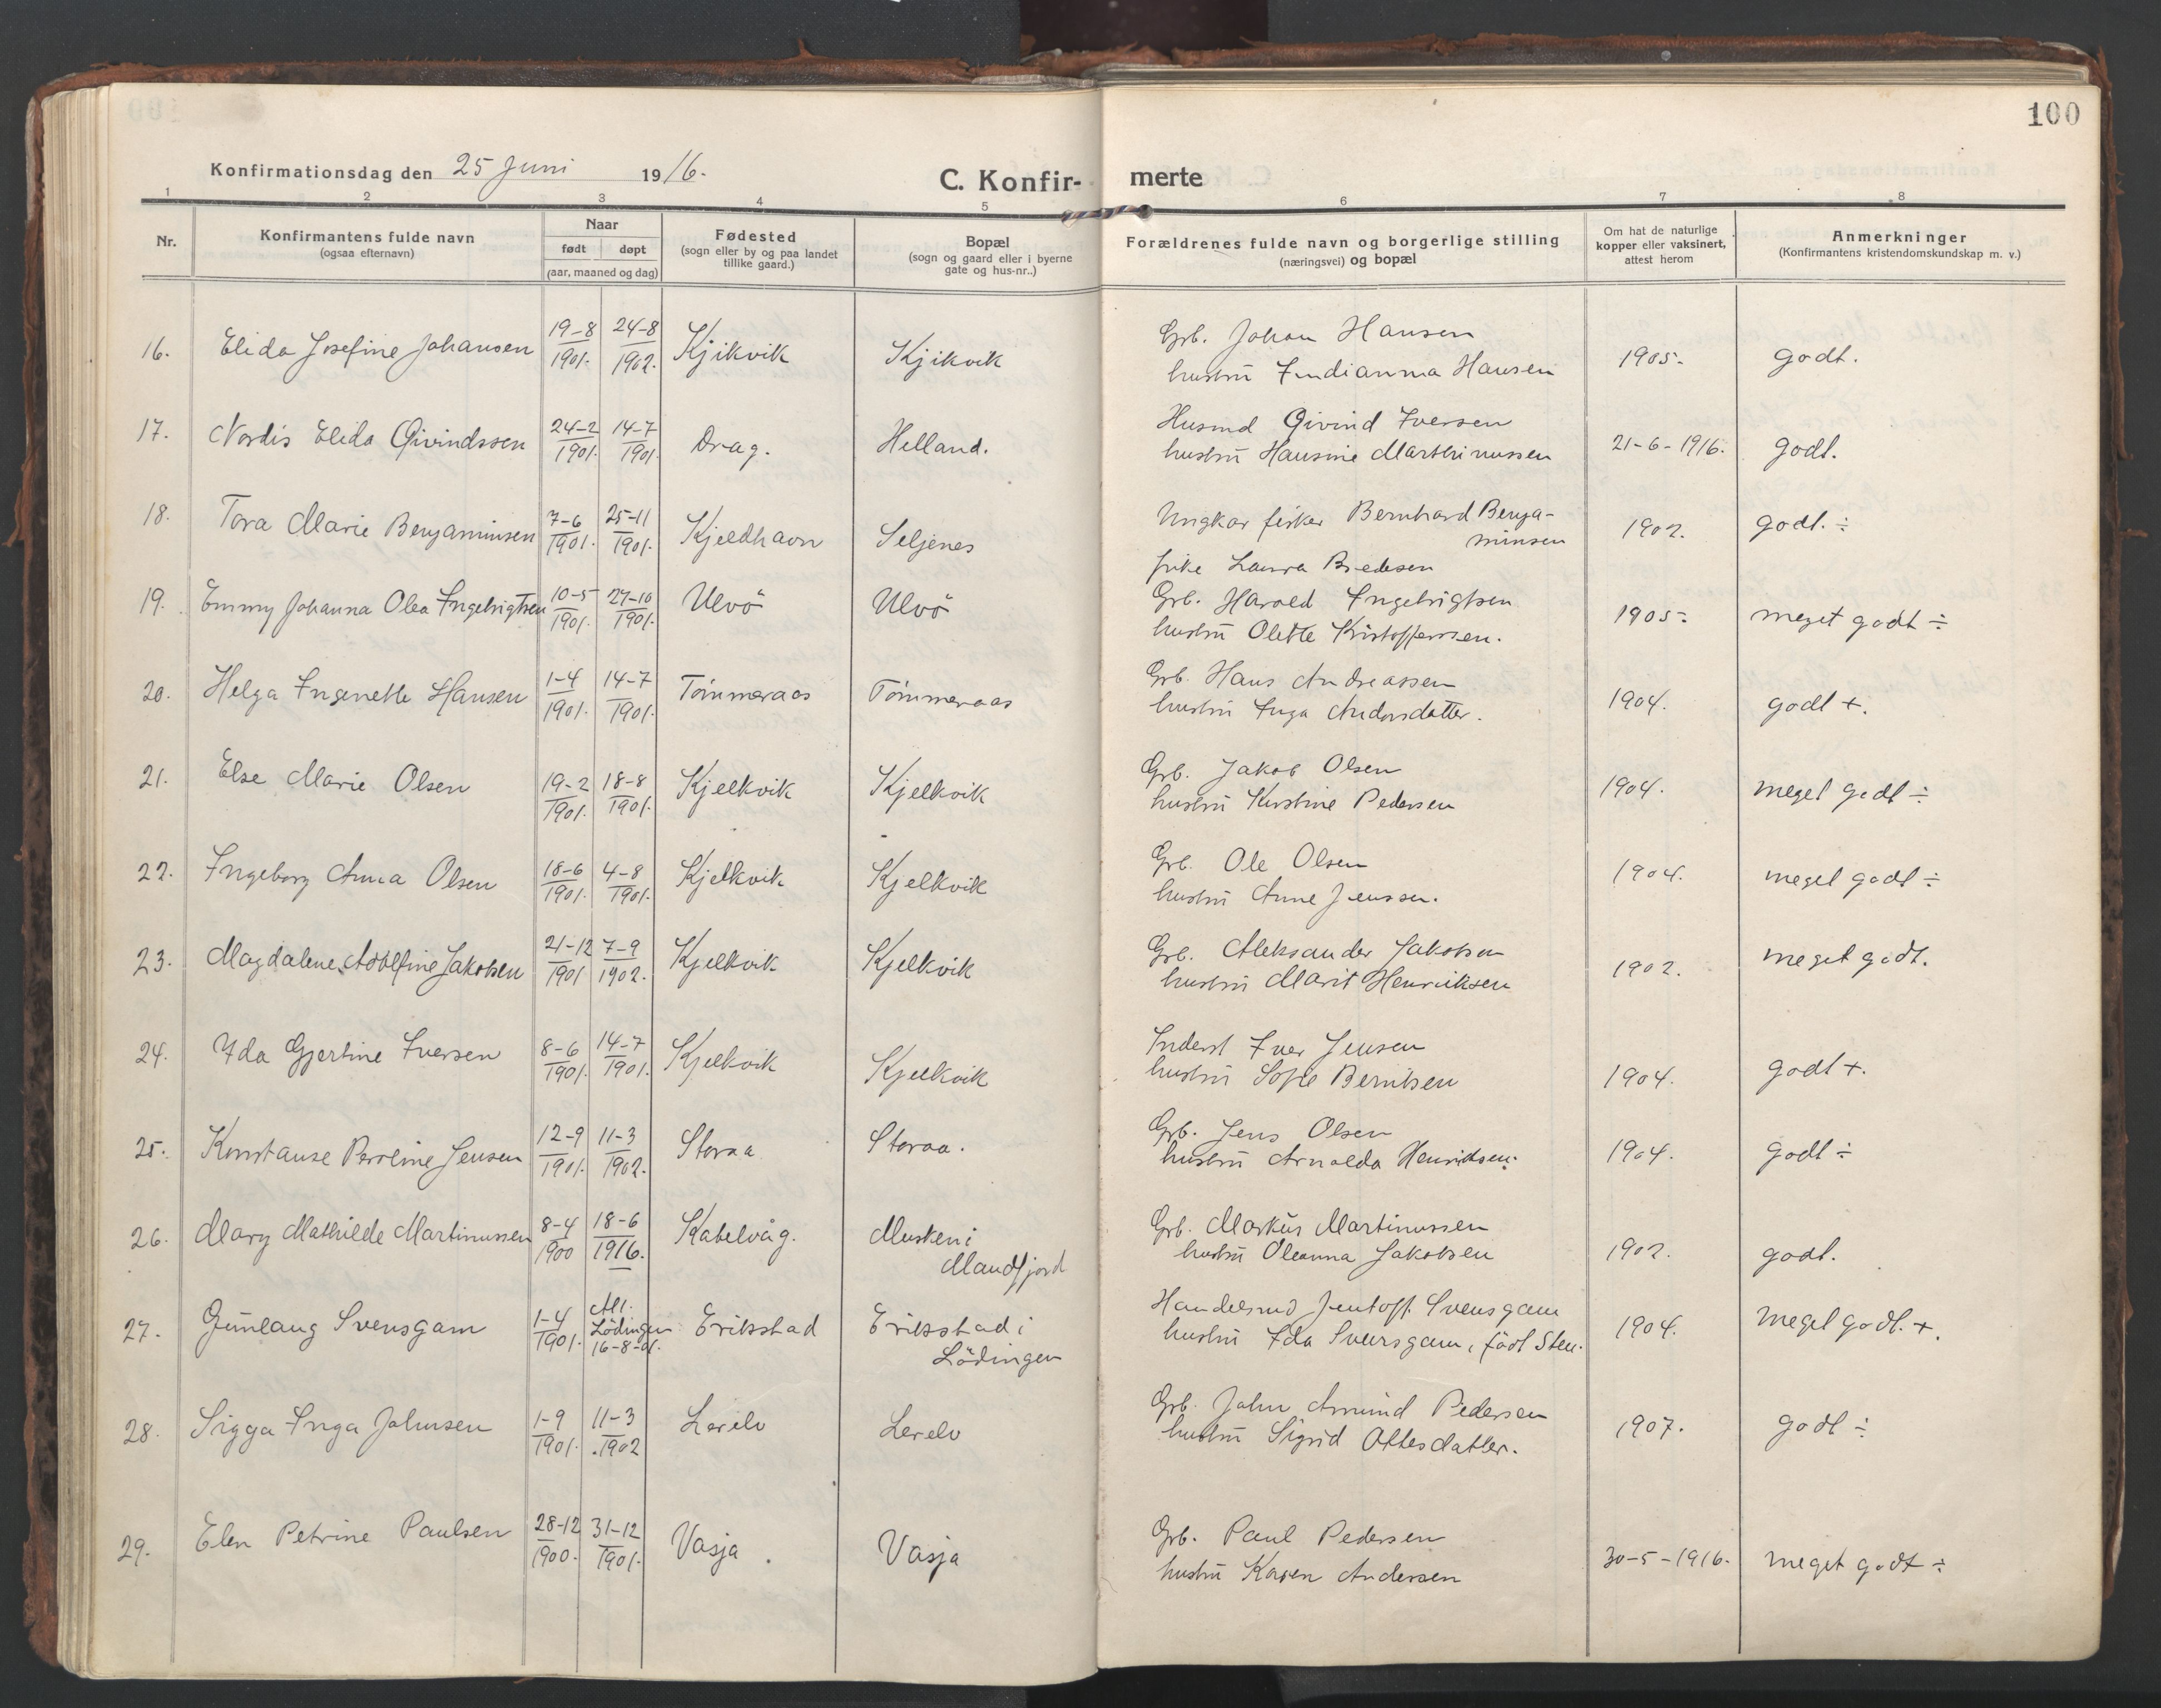 100
Konfirmationsdag den 25 Juni 1916.
C. Konfir- merte
1 2 3 4 5 6 7 8
Nr.
Konfirmantens fulde navn
(ogsaa efternavn)
Naar
født døpt
(aar, maaned og dag)
Fødested
(sogn eller by og paa landet
tillike gaard.)
Bopæl
(sogn og gaard eller i byerne
gate og hus-nr..)
Forældrenes fulde navn og borgerlige stilling
(næringsvei) og bopæl
Om hat de naturlige
kopper eller vaksinert,
attest herom
Anmerkninger
(Konfirmantens kristendomskundskap m. v.)
16. Elida Josefine Johansen 19-8 1901. 24-8 1902. Kjikvik Kjikvik
Grb. Johan Hansen
hustru Indianna Hansen 1905. godt.
17. Nordis Elida Øivindssen 24-2 1901. 14-7 1901. Drag. Helland.
Husmd Øivind Iversen
hustru Hansine Marthinussen 21-6-1916. godt.
18. Tora Marie Benjaminsen 7-6 1901. 25-11 1901. Kjeldhavn Seljenes
Ungkar fisker Bernhard Benja-
minsen
pike Laura Bredesen 1902. godt. ÷
19. Emmy Johanna Olea Ingebrigtsen 10-5 1901. 27-10 1901. Ulvö Ulvö
Grb. Harald Ingebrigtsen
hustru Olette Kristoffersen. 1905. meget godt ÷
20. Helga Ingenette Hansen 1-4 1901. 14-7 1901. Tömmeraas Tömmeraas
Grb. Hans Andreassen
hustru Inga Andersdatter. 1904. godt +.
21. Else Marie Olsen 19-2 1901. 18-8 1901. Kjelkvik Kjelkvik
Grb. Jakob Olsen
hustru Kirstine Pedersen 1904. meget godt ÷
22. Ingeborg Anna Olsen 18-6 1901. 4-8 1901. Kjelkvik Kjelkvik
Grb. Ole Olsen
hustru Anne Jenssen. 1904. meget godt ÷
23. Magdalene Adolfine Jakobsen 21-12 1901 7-9 1902. Kjelkvik Kjelkvik
Grb. Aleksander Jakobsen
hustru Marit Henriksen 1902. meget godt.
24. Ida Gjertine Iversen 8-6 1901. 14-7 1901. Kjelkvik Kjelkvik
Inderst Iver Jensen
hustru Sofie Berntsen 1904. godt +.
25. Konstanse Peroline Jensen 12-9 1901. 11-3 1902. Storaa Storaa.
Grb. Jens Olsen
hustru Arnolda Henriksen. 1904. godt ÷
26. Mary Mathilde Martinussen 8-4 1900 18-6 1916. Kabelvåg. Musken i
Mandfjord
Grb. Markus Martinussen
hustru Oleanna Jakobsen 1902. godt.
27. Gunlaug Svensgam 1-4 1901. Att. Lödingen 16-8-01. Erikstad Erikstad i
Lödingen
Handelsmd Jentoft Svensgam
hustru Ida Svensgam, född Sten. 1904. meget godt. +.
28. Sigga Inga Johnsen 1-9 1901. 11-3 1902 Lerelv Lerelv
Grb. John Amund Pedersen
hustru Sigrid Ottesdatter. 1907. godt ÷
29. Elen Petrine Paulsen 28-12 1900. 31-12 1901. Vasja. Vasja
Grb. Paul Pedersen
hustru Karen Andersen 30-5-1916. meget godt ÷